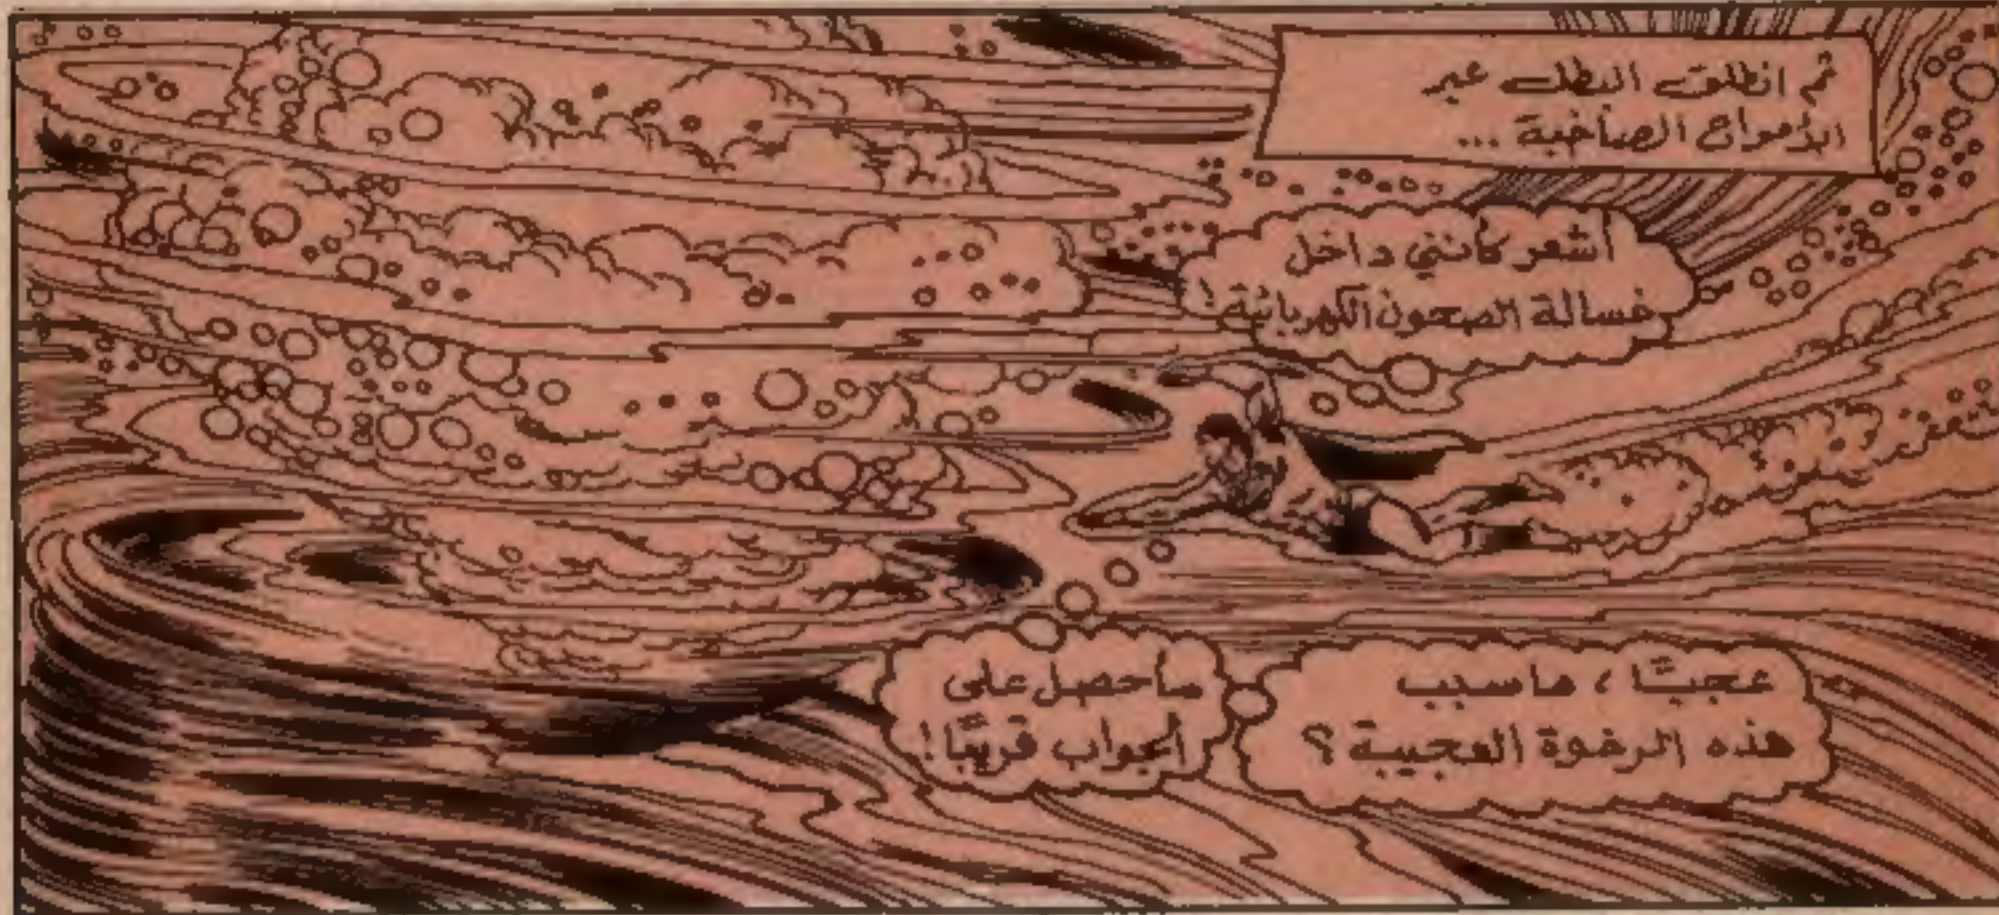 ثم انطلق البطل عبر
الأمواج الصاخبة ...
أشعر كأنني داخل
غسالة الصحون الكهربائية !
عجبًا ، ما سبب
هذه الرغوة العجيبة ؟
سأحصل على
الجواب قريبًا !